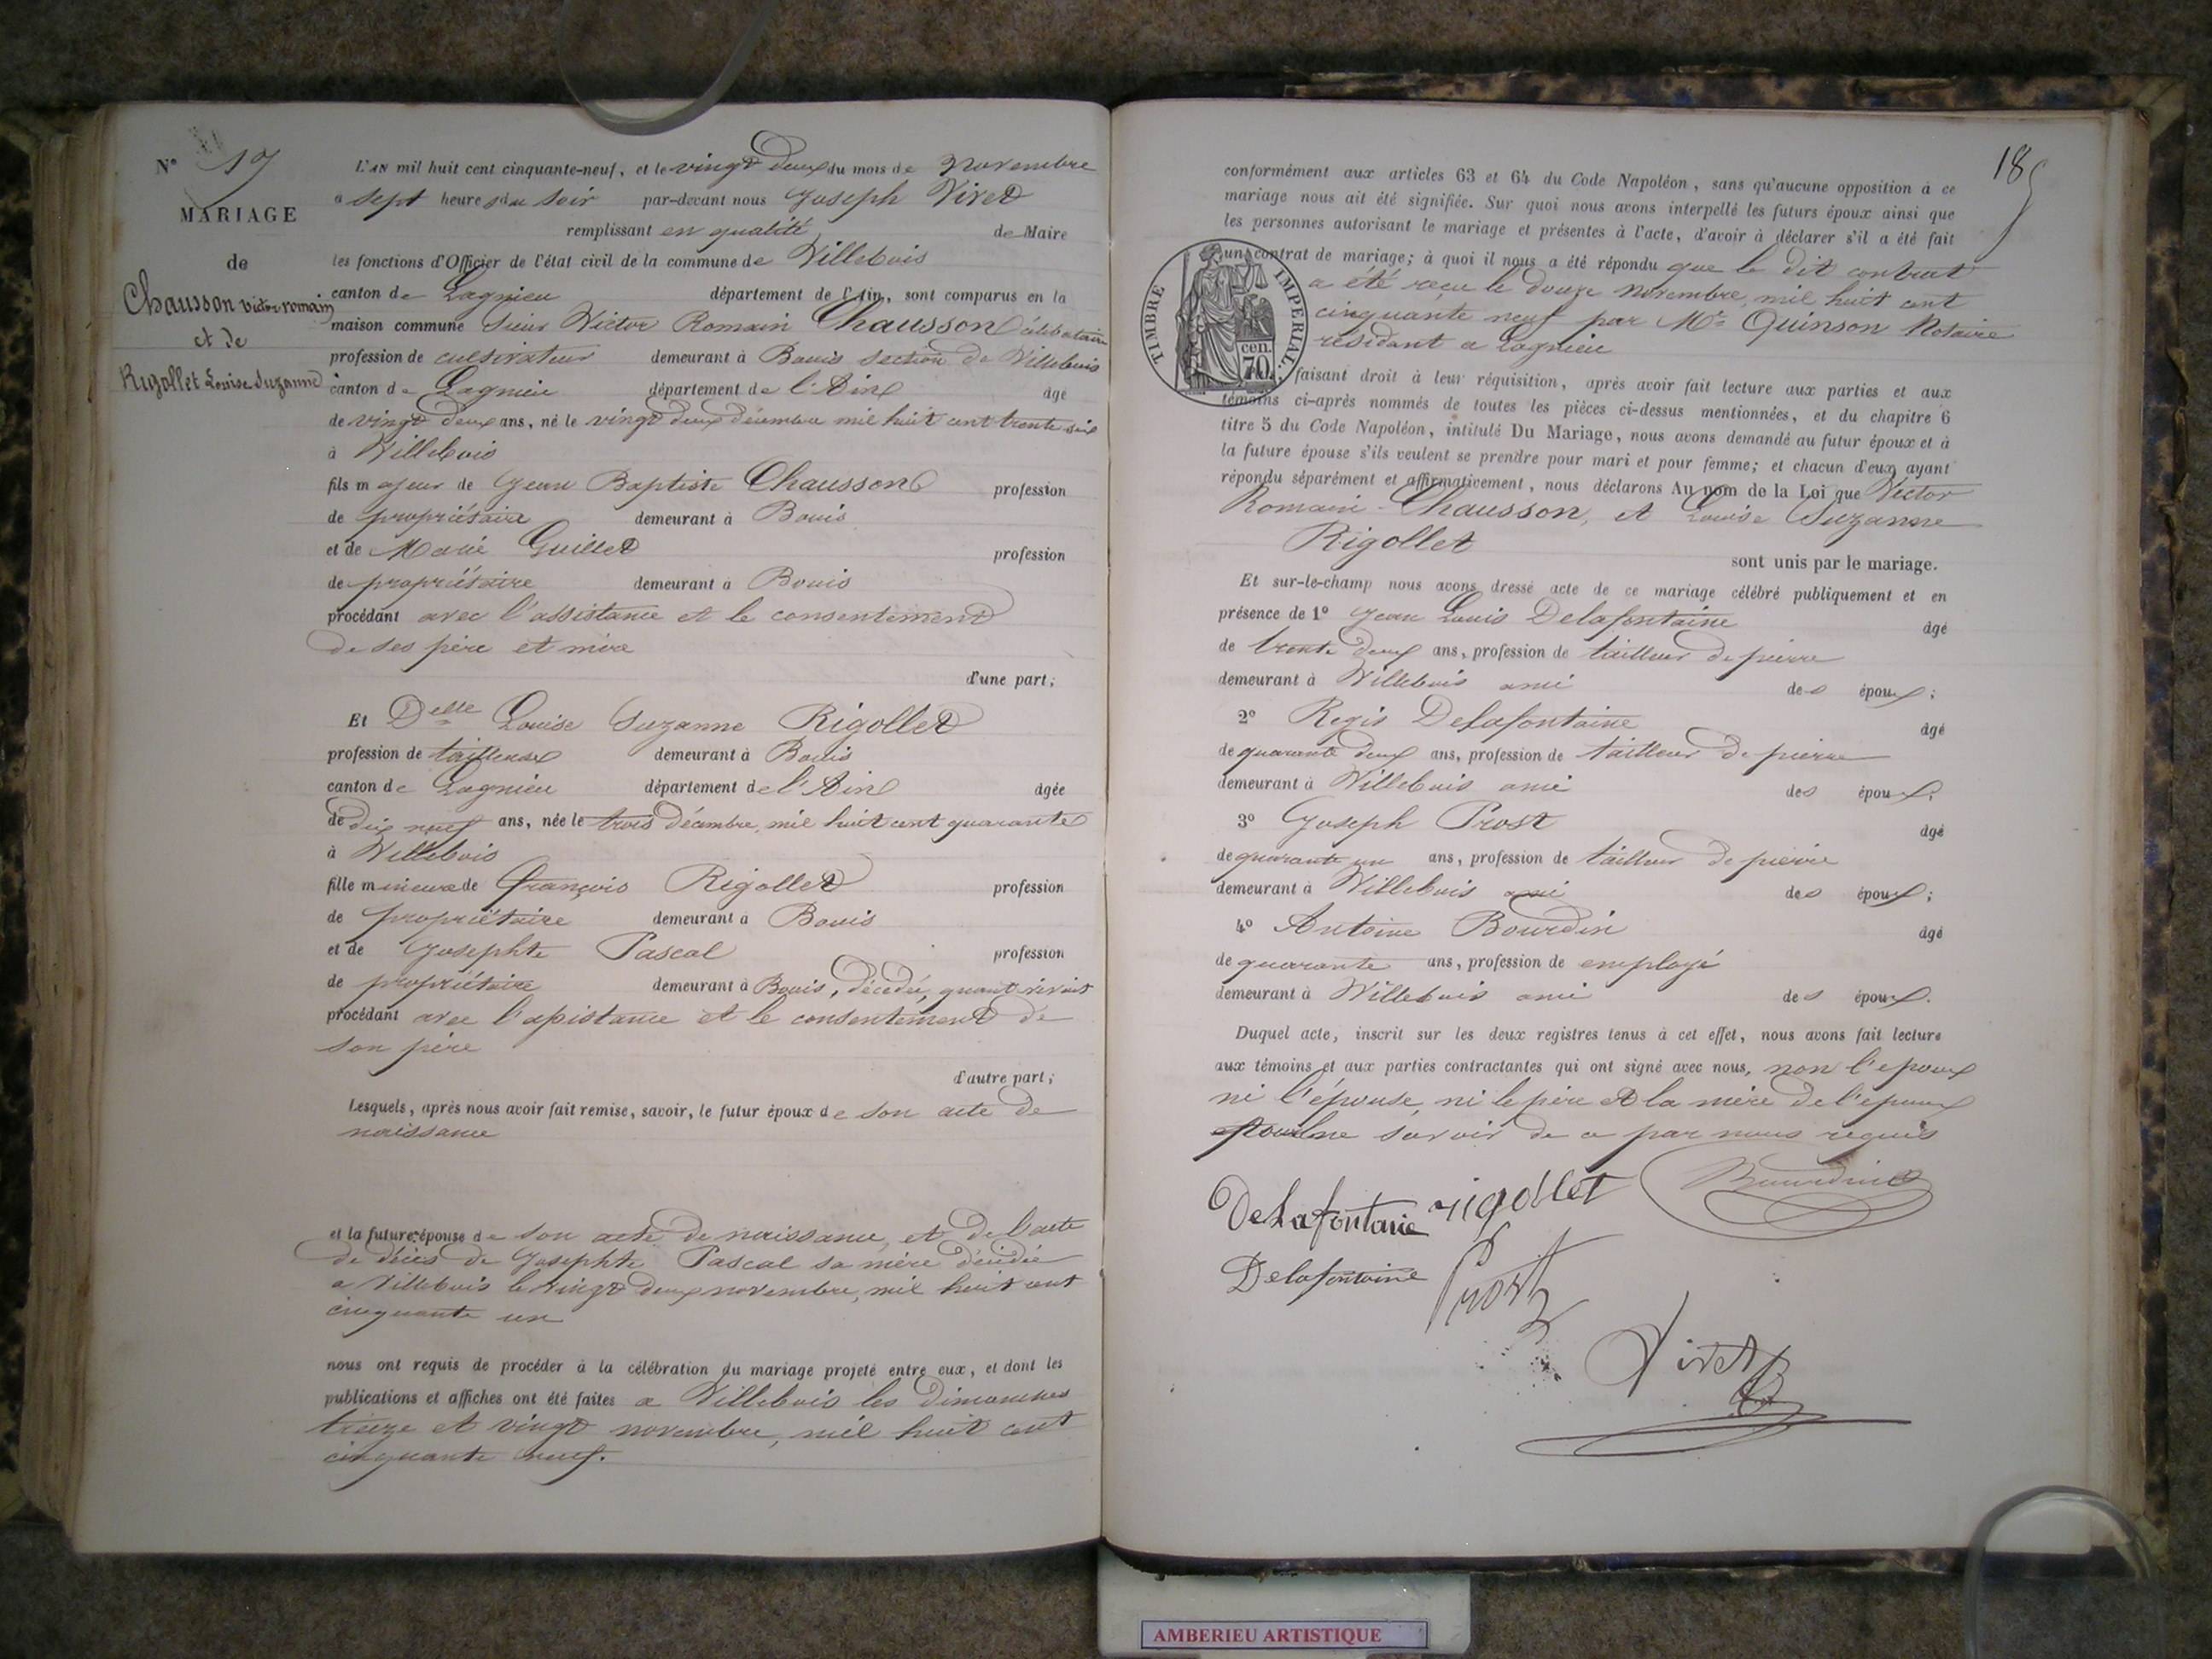 N° 17
MARIAGE
de
Chausson victor romain
et de
Rigollet Louise Suzanne
L'AN mil huit cent cinquante-neuf, et le vingt deux du mois de Novembre
a sept heures du soir par-devant nous Joseph Vivet
remplissant en qualité de Maire
les fonctions d'Officier de l'état civil de la commune de Villebois
canton de Lagnieu département de l'Ain, sont comparus en la
maison commune Sieur Victor Romain Chausson célibataire
profession de cultivateur demeurant à Bouis section de Villebois
canton de Lagnieu département de l'Ain âgé
de vingt deux ans, né le vingt deux décembre mil huit cent trente six
à Villebois
fils majeur de Jean Baptiste Chausson profession
de propriétaire demeurant à Bouis
et de Marie Guillet profession
de propriétaire demeurant à Bouis
procédant avec l'assistance et le consentement
de ses père et mère
d'une part;
Et Delle Louise Suzanne Rigollet
profession de tailleuse demeurant à Bouis
canton de Lagnieu département de l'Ain âgée
de dix neuf ans, née le trois décembre, mil huit cent quarante
à Villebois
fille mineure de François Rigollet profession
de propriétaire demeurant à Bouis
et de Josephte Pascal profession
de propriétaire demeurant à Bouis, décédée, quant vivait
procédant avec l'assistance et le consentement de
son père
d'autre part;
Lesquels, après nous avoir fait remise, savoir, le futur époux de son acte de
naissance
et la future épouse de son acte de naissance, et de l'acte
de décès de Josephte Pascal sa mère décédée
a Villebois le vingt deux novembre, mil huit cent
cinquante un
nous ont requis de procéder à la célébration du mariage projeté entre eux, et dont les
publications et affiches ont été faites a Villebois les dimanches
treize et vingt novembre, mil huit cent
cinquante neuf.
185
conformément aux articles 63 et 64 du Code Napoléon, sans qu'aucune opposition à ce
mariage nous ait été signifiée. Sur quoi nous avons interpellé les futurs époux ainsi que
les personnes autorisant le mariage et présentes à l'acte, d'avoir à déclarer s'il a été fait
un contrat de mariage; à quoi il nous a été répondu que le dit contrat
a été reçu le douze novembre, mil huit cent
cinquante neuf par Me Quinson Notaire
résidant a Lagnieu
TIMBRE IMPERIAL.
cen.
70.
faisant droit à leur réquisition, après avoir fait lecture aux parties et aux
témoins ci-après nommés de toutes les pièces ci-dessus mentionnées, et du chapitre 6
titre 5 du Code Napoléon, intitulé Du Mariage, nous avons demandé au futur époux et à
la future épouse s'ils veulent se prendre pour mari et pour femme; et chacun d'eux ayant
répondu séparément et affirmativement, nous déclarons Au nom de la Loi que Victor
Romain Chausson, et Louise Suzanne
Rigollet
sont unis par le mariage.
Et sur-le-champ nous avons dressé acte de ce mariage célébré publiquement et en
présence de 1° Jean Louis Delafontaine âgé
de trente deux ans, profession de tailleur de pierre
demeurant à Villebois ami des époux;
2° Regis Delafontaine âgé
de quarante deux ans, profession de tailleur de pierre
demeurant à Villebois ami des époux;
3° Joseph Prost âgé
de quarante un ans, profession de tailleur de pierre
demeurant à Villebois ami des époux;
4° Antoine Bourdin âgé
de quarante ans, profession de employé
demeurant à Villebois ami des époux.
Duquel acte, inscrit sur les deux registres tenus à cet effet, nous avons fait lecture
aux témoins et aux parties contractantes qui ont signé avec nous, non l'époux
ni l'épouse, ni le père et la mère de l'époux
pour ne savoir de ce par nous requis
DeLafontaine rigollet Bourdin
Delafontaine Prost
Vivet
AMBERIEU ARTISTIQUE